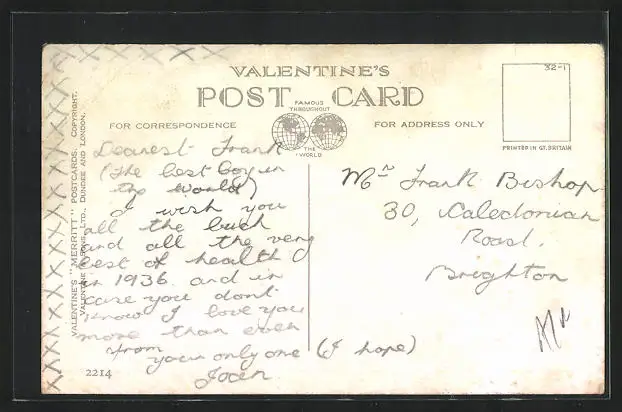 VALENTINE'S
POST CARD
FAMOUS
THROUGHOUT
THE
WORLD
FOR CORRESPONDENCE
FOR ADDRESS ONLY
32-1
PRINTED IN GT. BRITAIN
VALENTINE'S "MERRITT" POSTCARDS. COPYRIGHT.
VALENTINE & SONS, LTD., DUNDEE AND LONDON.
Dearest Frank
(the best boy in
the world)
I wish you
all the luck
and all the very
best of health
in 1936 and in
case you dont
know I love you
more than ever
from
your only one (I hope)
Joan
Mr Frank Bishop
30, Caledonian
Road.
Brighton
2214